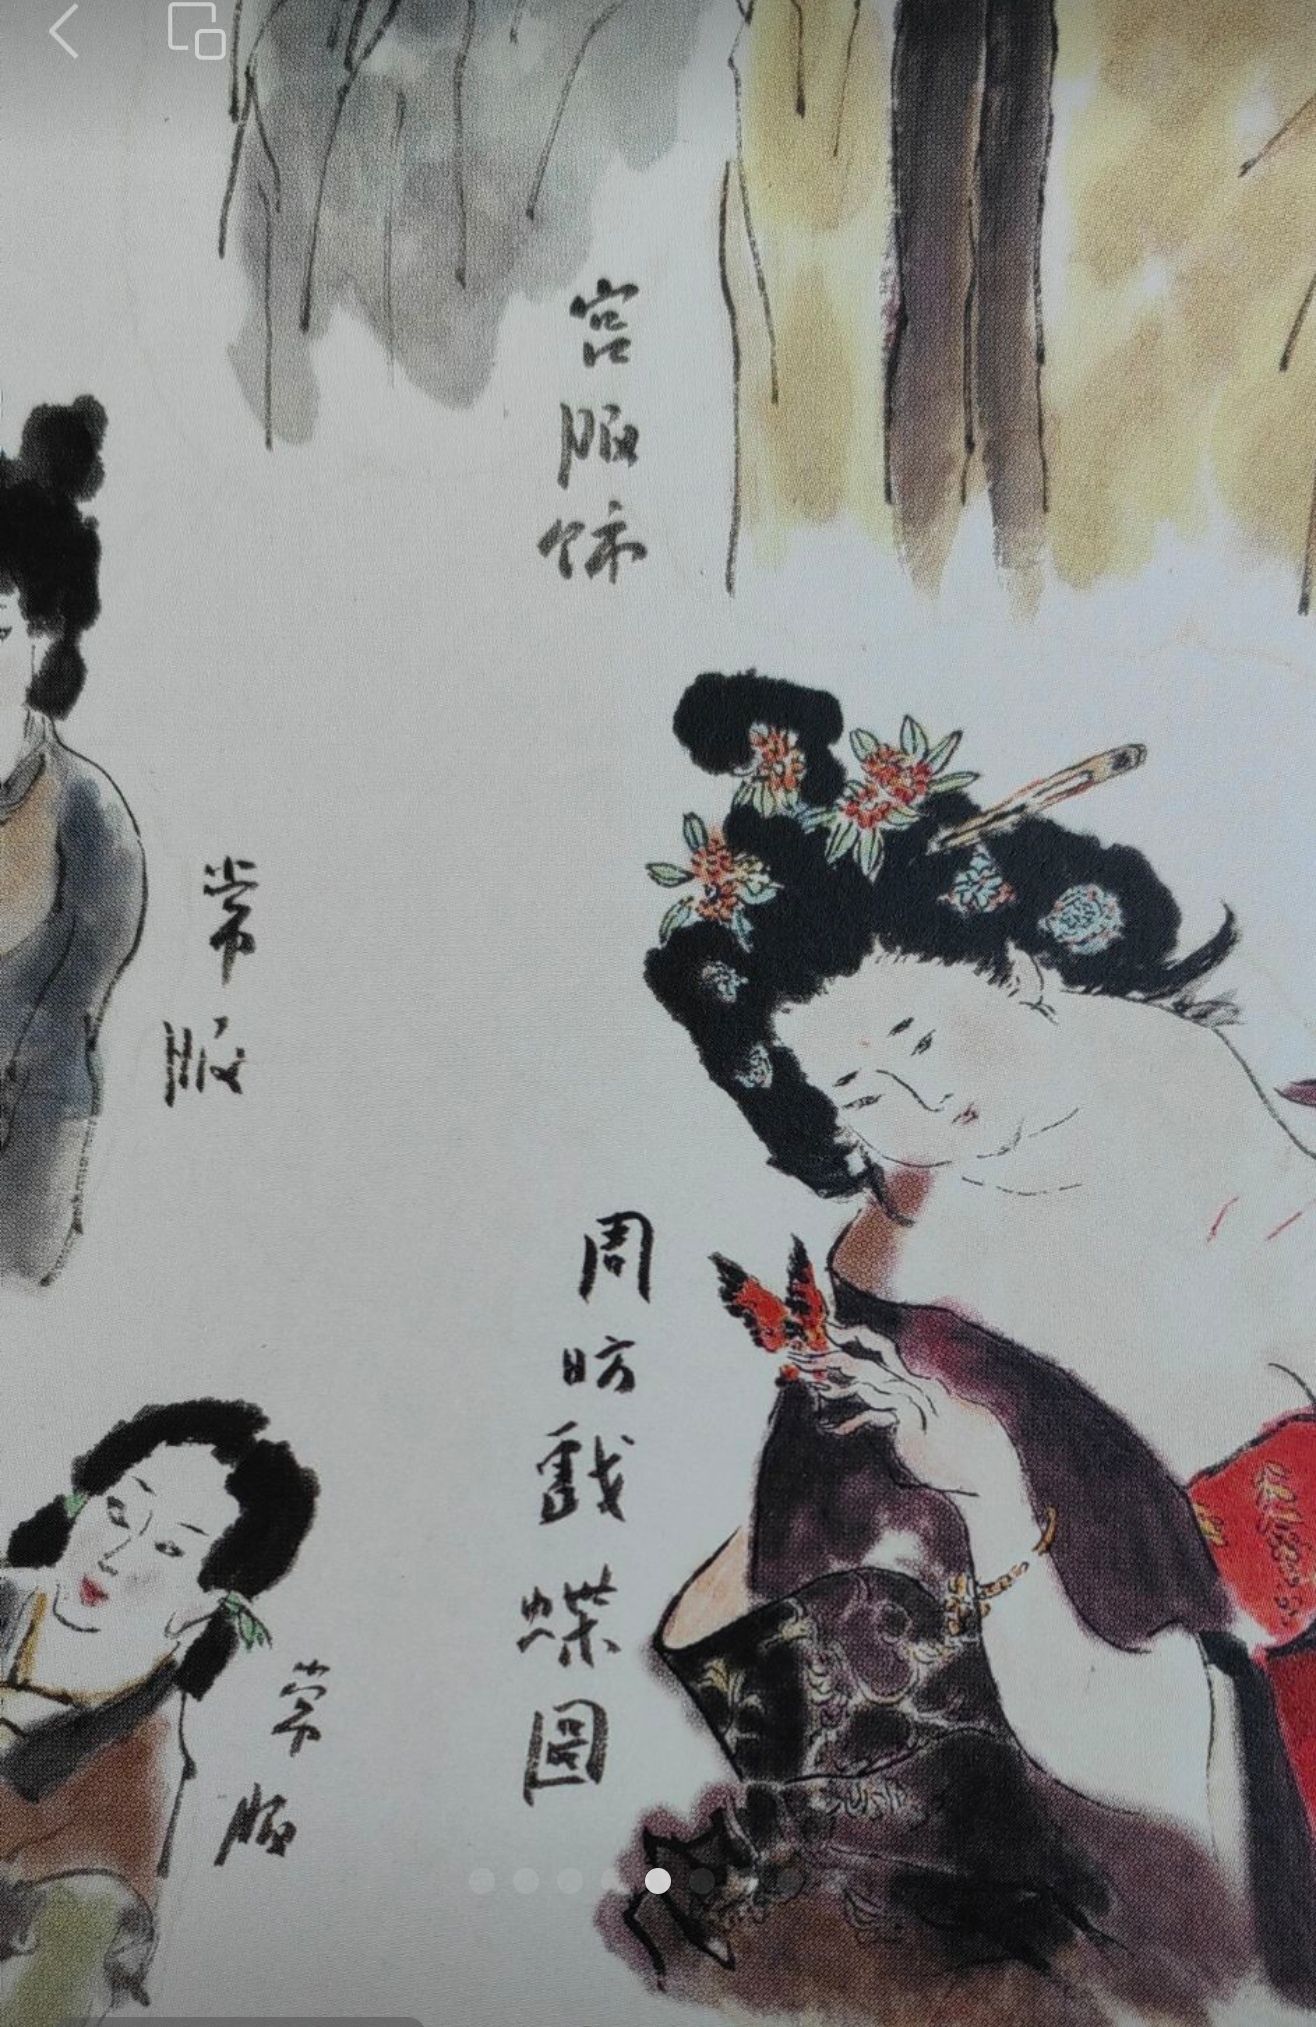 宮服飾
周昉戲蝶圖
常服
常服